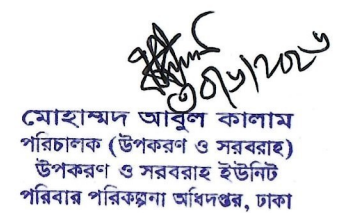 মোহাম্মদ আবুল কালাম
পরিচালক (উপকরণ ও সরবরাহ)
উপকরণ ও সরবরাহ ইউনিট
পরিবার পরিকল্পনা অধিদপ্তর, ঢাকা